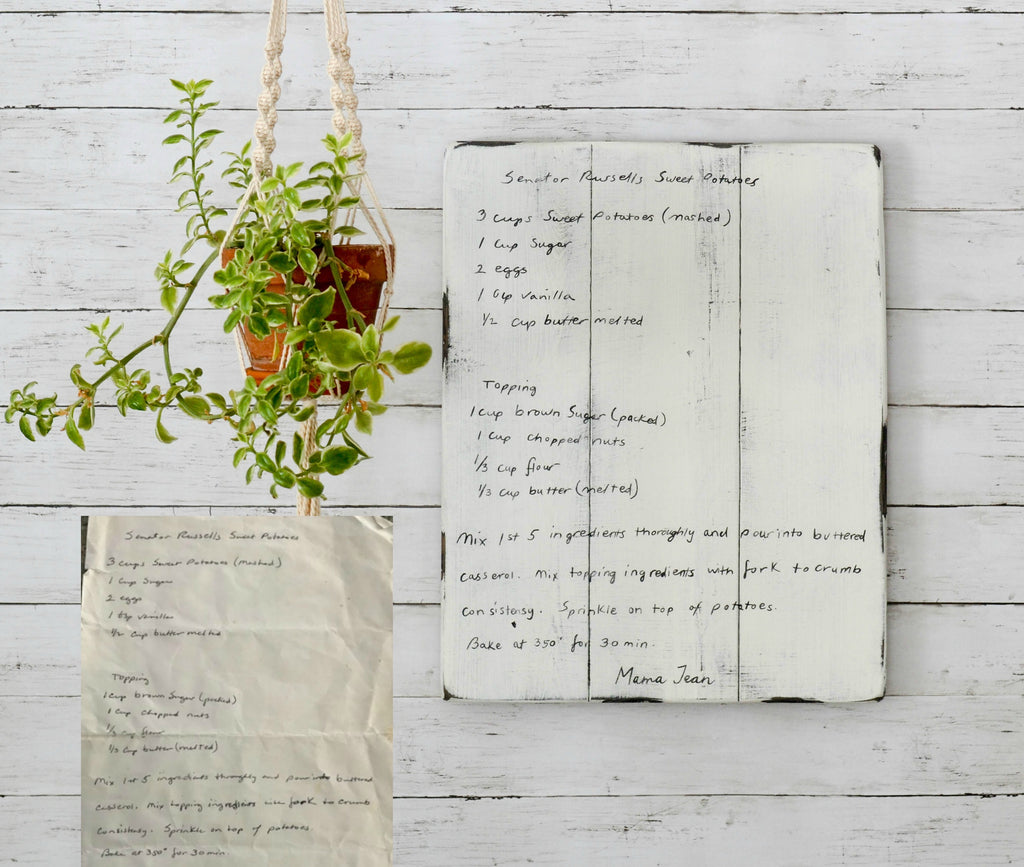 Senator Russells Sweet Potatoes
3 cups Sweet Potatoes (mashed)
1 Cup Sugar
2 eggs
1 vanilla
1/2 cup butter melted
Topping
1 cup brown Sugar (packed)
1 cup chopped nuts
1/3 cup flour
1/3 cup butter (melted)
Mix 1st 5 ingredients thoroughly and pour into buttered
casserol. Mix topping ingredients with fork to crumb
consisteny. Sprinkle on top of potatoes.
Bake at 350° for 30 min.
Mama Jean
Senator Russells Sweet Potatoes
3 cups Sweet Potatoes (mashed)
1 Cup Sugar
2 eggs
1 vanilla
1/2 cup butter melted
Topping
1 cup brown Sugar (packed)
1 cup chopped nuts
1/3 cup flour
1/3 cup butter (melted)
Mix 1st 5 ingredients and pour into buttered
casserol. Mix topping ingredients fork to crumb
Sprinkle on top of potatoes.
Bake at 350° for 30 min.